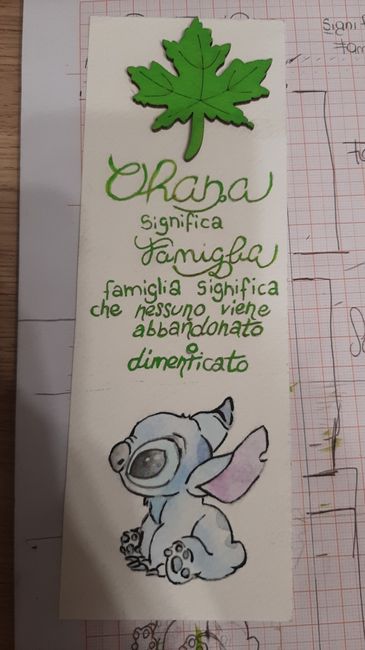 Ohana
significa
Famiglia
famiglia significa
che nessuno viene
abbandonato
o
dimenticato
Signi